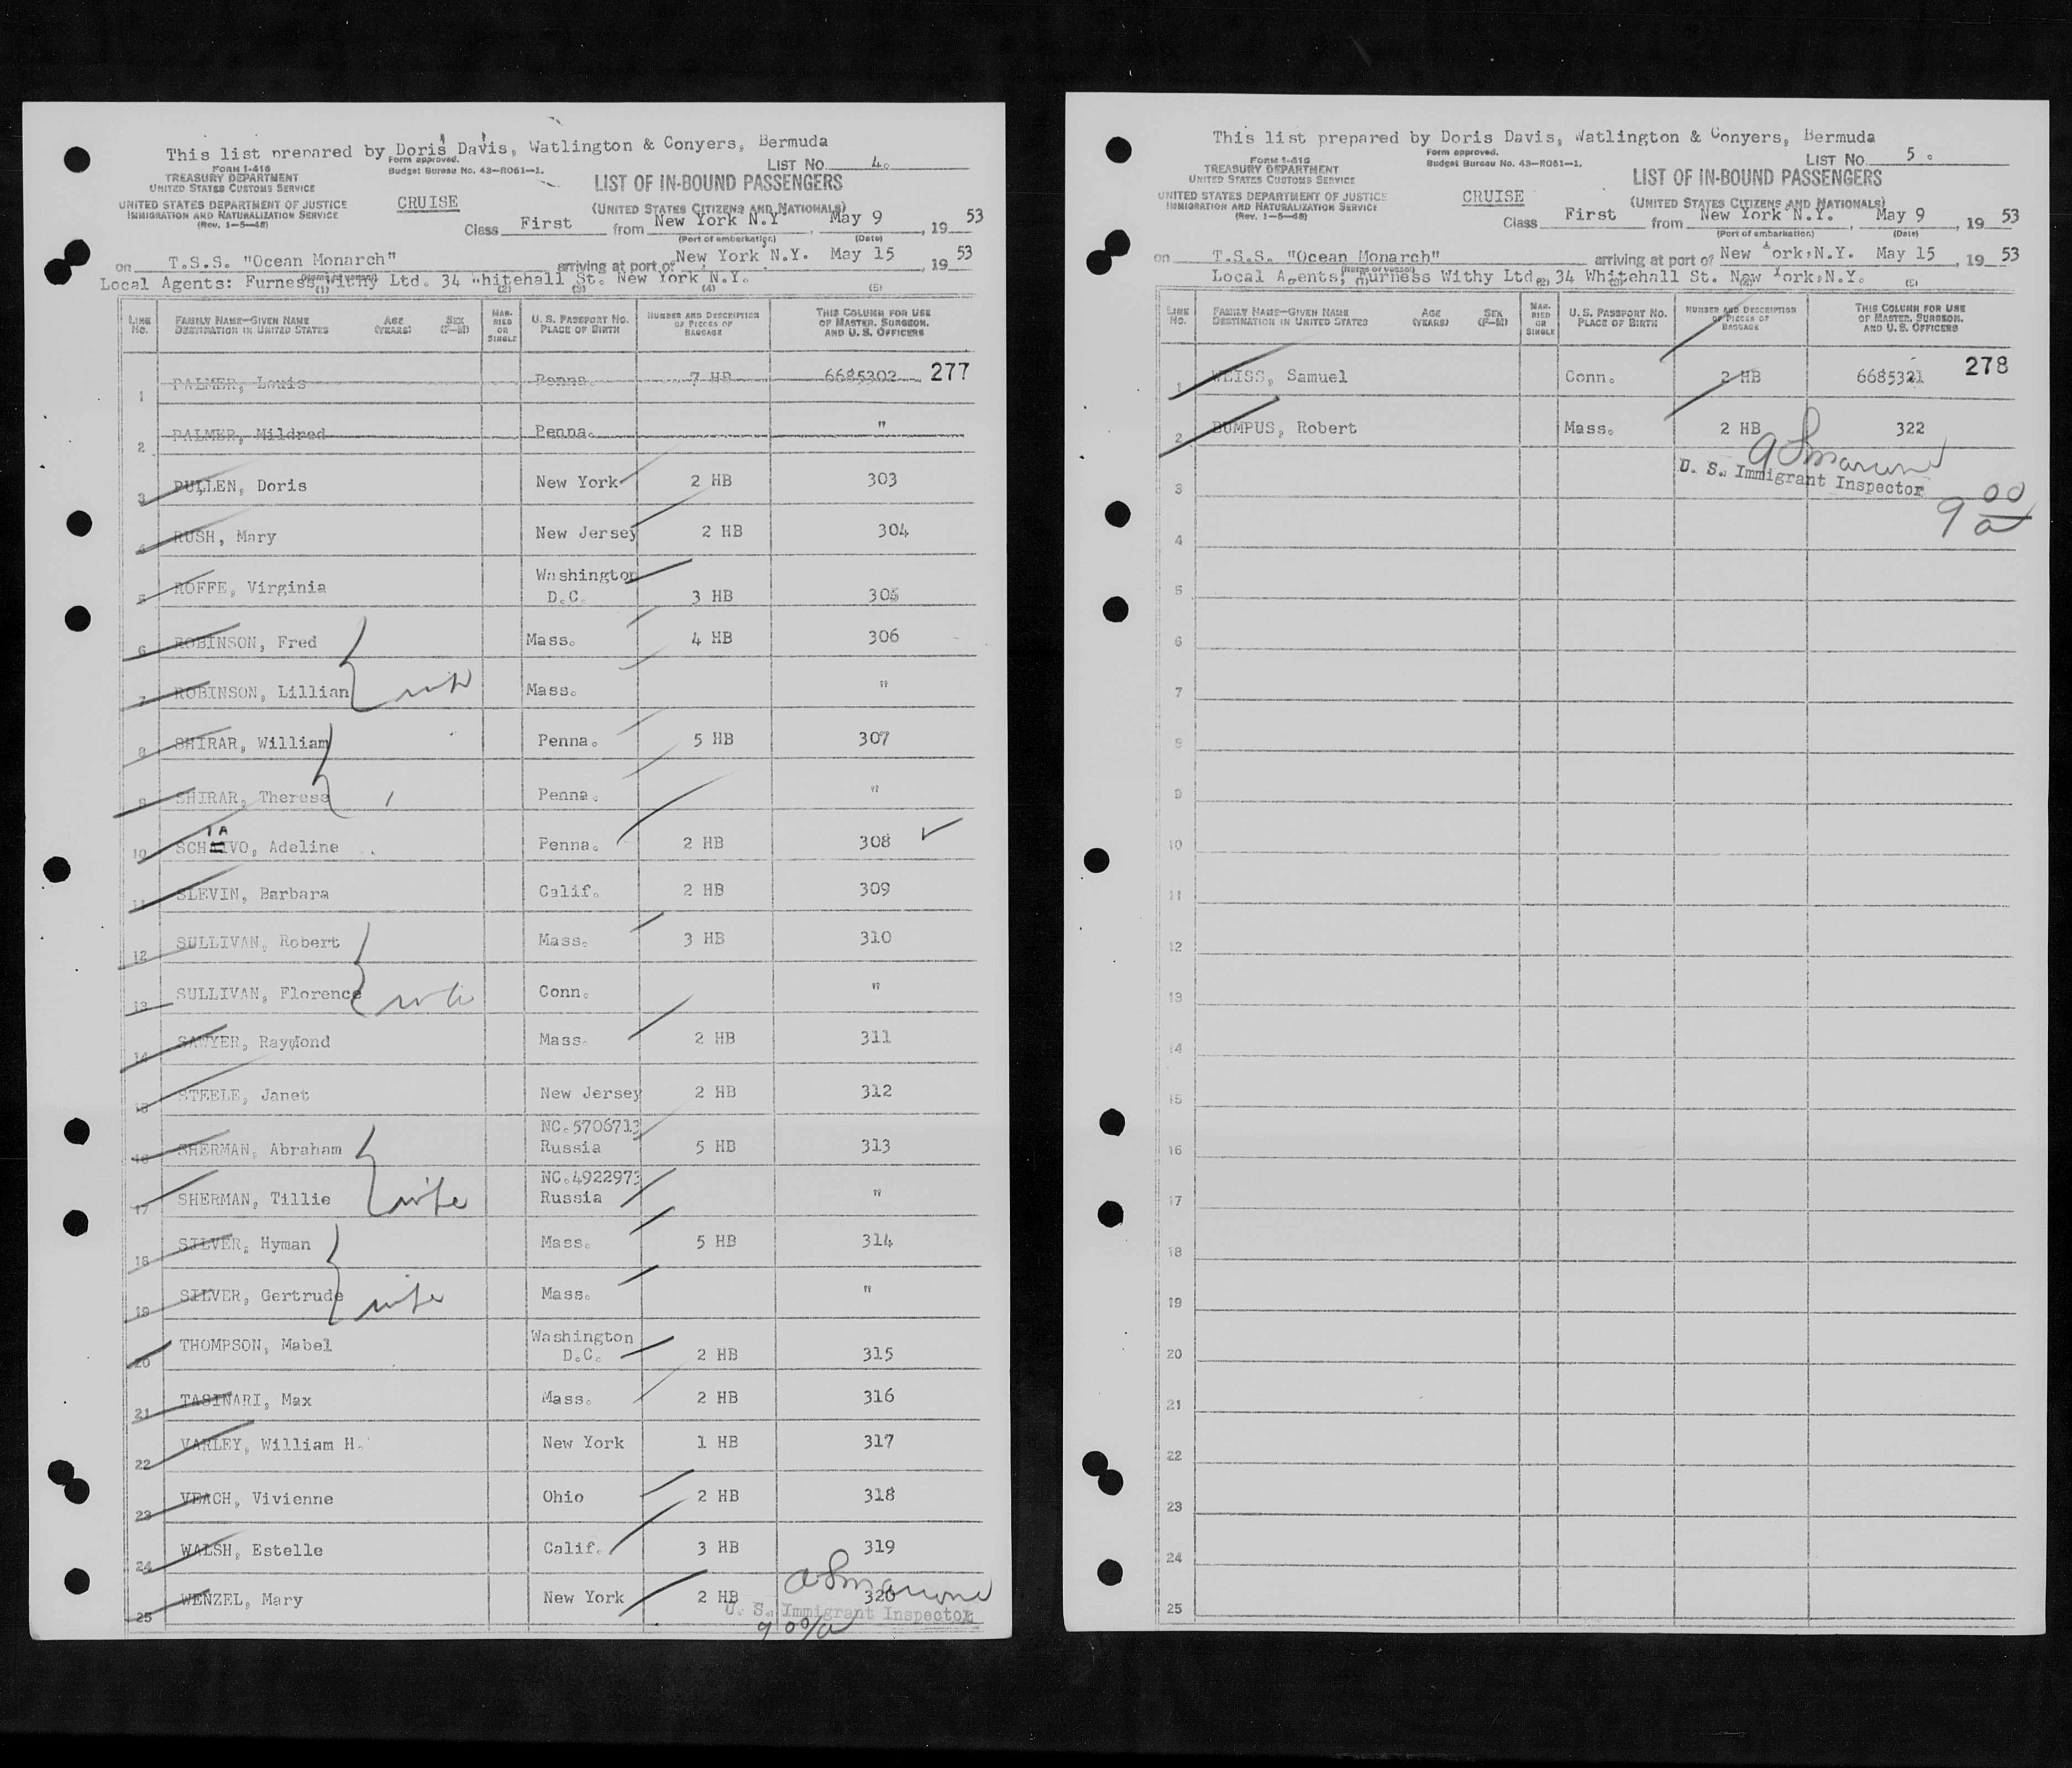 This list prepared by Doris Davis, Watlington & Conyers, Bermuda
Form approved.
Budget Bureau No. 43-R061-1.
LIST No. 4.
FORM I-416
TREASURY DEPARTMENT
UNITED STATES CUSTOMS SERVICE
UNITED STATES DEPARTMENT OF JUSTICE
IMMIGRATION AND NATURALIZATION SERVICE
(Rev. 1-5-48)
CRUISE
LIST OF IN-BOUND PASSENGERS
(UNITED STATES CITIZENS AND NATIONALS)
Class First from New York N.Y., May 9, 1953
(Port of embarkation) (Date)
on T.S.S. "Ocean Monarch" arriving at port of New York N.Y. May 15, 1953
(Name of vessel)
Local Agents: Furness Withy Ltd. 34 Whitehall St. New York N.Y.
(1) (2) (3) (4) (5)
LINE No. FAMILY NAME—GIVEN NAME DESTINATION IN UNITED STATES AGE (YEARS) SEX (F-M) MARRIED OR SINGLE U. S. PASSPORT No. PLACE OF BIRTH NUMBER AND DESCRIPTION OF PIECES OF BAGGAGE THIS COLUMN FOR USE OF MASTER, SURGEON, AND U. S. OFFICERS
1 PALMER, Louis Penna. 7 HB 6685302 277
2 PALMER, Mildred Penna. "
3 PULLEN, Doris New York 2 HB 303
4 RUSH, Mary New Jersey 2 HB 304
5 ROFFE, Virginia Washington D.C. 3 HB 305
6 ROBINSON, Fred Mass. 4 HB 306
7 ROBINSON, Lillian wife Mass. "
8 SHIRAR, William Penna. 5 HB 307
9 SHIRAR, Therese Penna. "
10 SCHIAVO, Adeline Penna. 2 HB 308 ✓
11 SLEVIN, Barbara Calif. 2 HB 309
12 SULLIVAN, Robert Mass. 3 HB 310
13 SULLIVAN, Florence wife Conn. "
14 SAWYER, Raymond Mass. 2 HB 311
15 STEELE, Janet New Jersey 2 HB 312
16 SHERMAN, Abraham NC.5706713 Russia 5 HB 313
17 SHERMAN, Tillie wife NC.4922973 Russia "
18 SILVER, Hyman Mass. 5 HB 314
19 SILVER, Gertrude wife Mass. "
20 THOMPSON, Mabel Washington D.C. 2 HB 315
21 TASINARI, Max Mass. 2 HB 316
22 VARLEY, William H. New York 1 HB 317
23 VEACH, Vivienne Ohio 2 HB 318
24 WALSH, Estelle Calif. 3 HB 319
25 WENZEL, Mary New York 2 HB 320
U. S. Immigrant Inspector
9 00/a
This list prepared by Doris Davis, Watlington & Conyers, Bermuda
Form approved.
Budget Bureau No. 43-R061-1.
LIST No. 5.
FORM I-416
TREASURY DEPARTMENT
UNITED STATES CUSTOMS SERVICE
UNITED STATES DEPARTMENT OF JUSTICE
IMMIGRATION AND NATURALIZATION SERVICE
(Rev. 1-5-48)
CRUISE
LIST OF IN-BOUND PASSENGERS
(UNITED STATES CITIZENS AND NATIONALS)
Class First from New York N.Y., May 9, 1953
(Port of embarkation) (Date)
on T.S.S. "Ocean Monarch" arriving at port of New York.N.Y. May 15, 1953
(Name of vessel)
Local Agents; Furness Withy Ltd. 34 Whitehall St. New York.N.Y.
(1) (2) (3) (4) (5)
LINE No. FAMILY NAME—GIVEN NAME DESTINATION IN UNITED STATES AGE (YEARS) SEX (F-M) MARRIED OR SINGLE U. S. PASSPORT No. PLACE OF BIRTH NUMBER AND DESCRIPTION OF PIECES OF BAGGAGE THIS COLUMN FOR USE OF MASTER, SURGEON, AND U. S. OFFICERS
1 WEISS, Samuel Conn. 2 HB 6685321 278
2 BUMPUS, Robert Mass. 2 HB 322
U. S. Immigrant Inspector
3
9 00 a
4
5
6
7
8
9
10
11
12
13
14
15
16
17
18
19
20
21
22
23
24
25